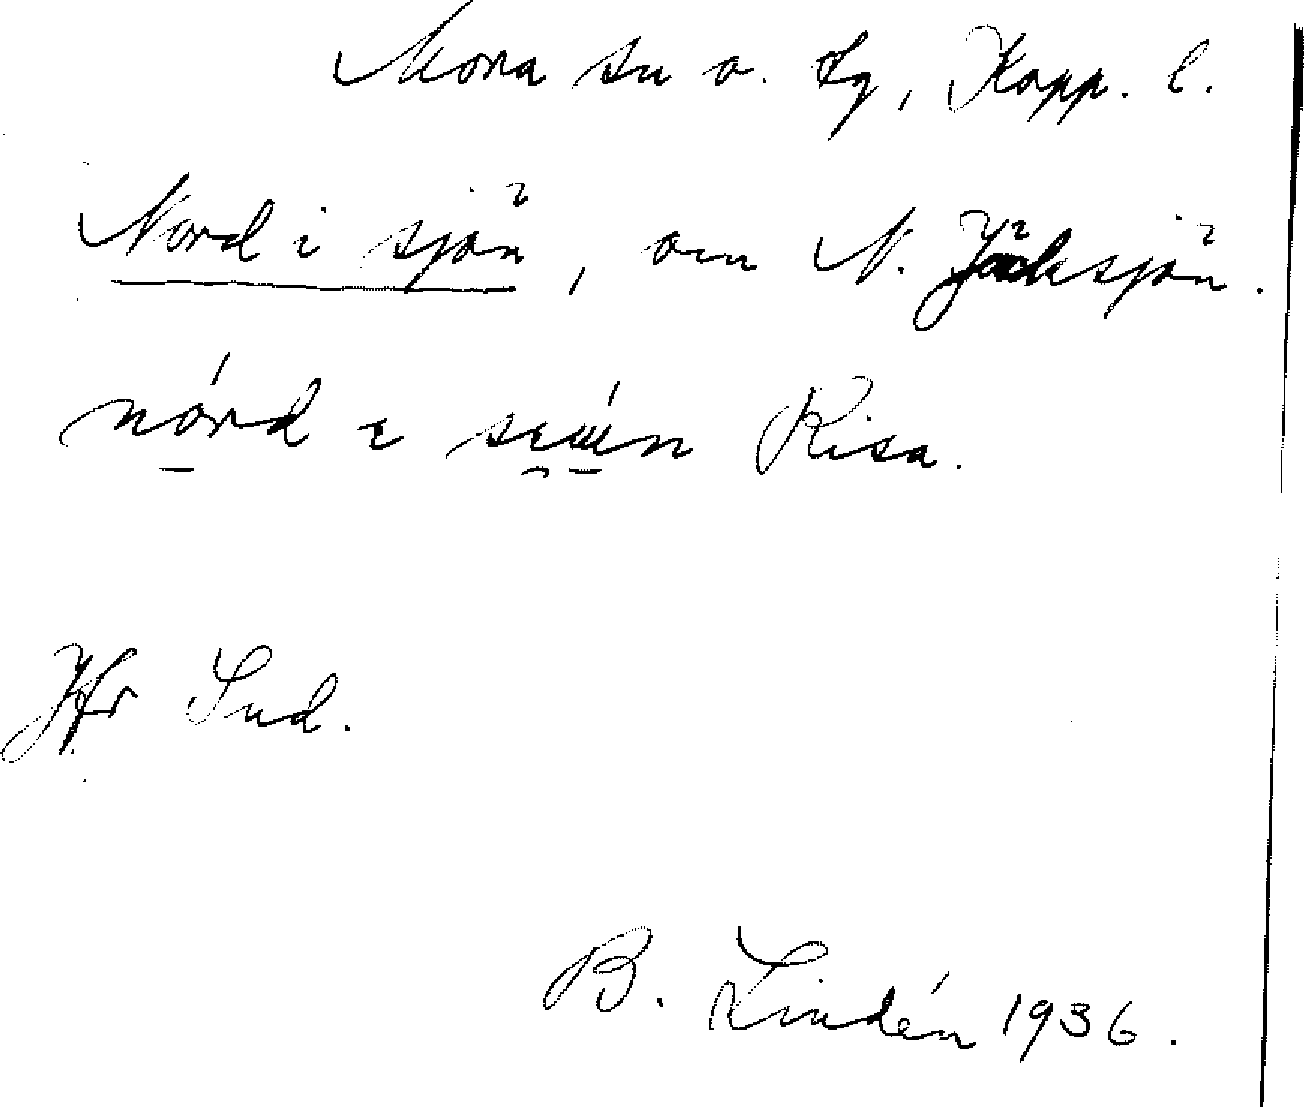 Mora sn o. tg, Kopp. l.
Nord i sjön, om N. Jäcksjön.
nórd i Risa.
Jfr Sud.
B. Lindén 1936.